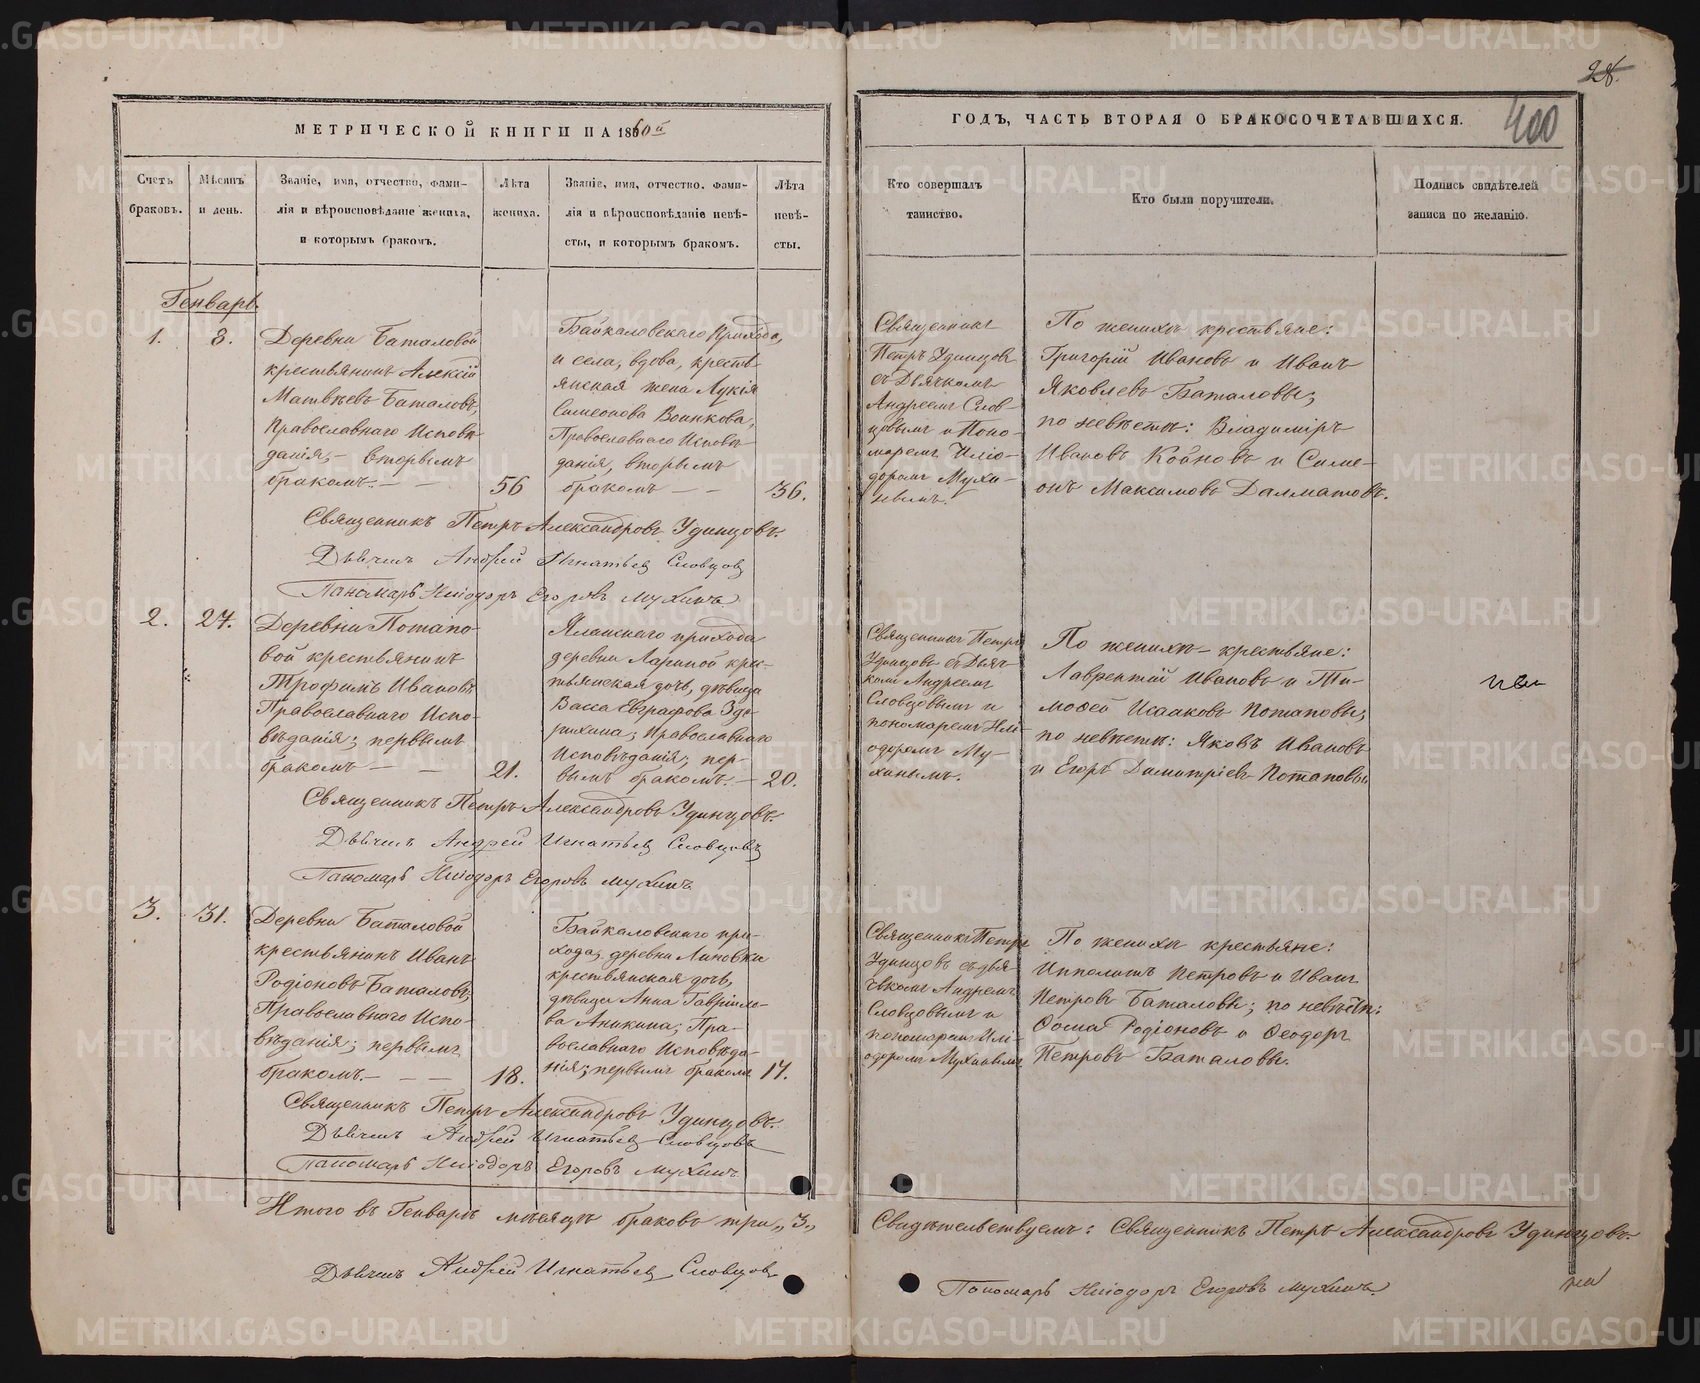 28.
400
МЕТРИЧЕСКОЙ КНИГИ НА 1860й
ГОДЪ, ЧАСТЬ ВТОРАЯ О БРАКОСОЧЕТАВШИХСЯ.
Счетъ браковъ.
Мѣсяцъ и день.
Званіе, имя, отчество, фами-
лія и вѣроисповѣданіе жениха,
и которымъ бракомъ.
Лѣта
жениха.
Званіе, имя, отчество, фами-
лія и вѣроисповѣданіе невѣ-
сты, и которымъ бракомъ.
Лѣта
невѣ-
сты.
Кто совершалъ
таинство.
Кто были поручители.
Подпись свидѣтелей
записи по желанію.
Генварь.
1.
3.
Деревни Баталовой
крестьянинъ Алексій
Матвѣевъ Баталовъ,
Православнаго Исповѣ-
данія,- вторымъ
бракомъ.- -
56
Байкаловскаго Прихода,
и села, вдова, кресть-
янская жена Лукія
Симеонова Воинкова,
Православнаго Исповѣ-
данія, вторымъ
бракомъ - -
36.
Священникъ
Петръ Удинцовъ
съ Дьячкомъ
Андреемъ Слов-
цовымъ и Поно-
маремъ Иліо-
доромъ Мухи-
нымъ.
По женихѣ крестьяне:
Григорій Ивановъ и Иванъ
Яковлевъ Баталовы;
по невѣстѣ: Владиміръ
Ивановъ Койновъ и Симе-
онъ Максимовъ Далматовъ.
Священникъ Петръ Александровъ Удинцовъ.
Дьячекъ Андрей Игнатьев Словцов
Панамарь Иліодоръ Егоровъ Мухинъ
2.
27.
Деревни Потапо-
вой крестьянинъ
Трофимъ Ивановъ
Православнаго Испо-
вѣданія; первымъ
бракомъ - -
21.
Яланскаго прихода
деревни Лариной кре-
стьянская дочь, дѣвица
Васса Евграфова
Православнаго
Исповѣданія, пер-
вымъ бракомъ.-
20.
Священникъ Петръ
Удинцовъ съ Дьяч-
комъ Андреемъ
Словцовымъ и
пономаремъ Илі-
одоромъ Му-
хинымъ.
По женихѣ - крестьяне:
Лаврентій Ивановъ и Ти-
моѳей Исааковъ Потаповы;
по невѣстѣ: Яковъ Ивановъ
и Егоръ Димитріевъ Потаповы
Священникъ Петръ Александровъ Удинцовъ.
Дьячекъ Андрей Игнатьев Словцовъ
Панамарь Иліодоръ Егоровъ Мухинъ
3.
31.
Деревни Баталовой
крестьянинъ Иванъ
Родіоновъ Баталовъ,
Православнаго Испо-
вѣданія; первымъ
бракомъ.- - -
18.
Байкаловскаго при-
хода, деревни Липовки
крестьянская дочь,
дѣвица Анна Гавріило-
ва Аникина; Пра-
вославнаго Исповѣда-
нія; первымъ бракомъ
17.
Священникъ Петръ
Удинцовъ съ дья-
чкомъ Андреемъ
Словцовымъ и
пономаремъ Илі-
одоромъ Мухинымъ
По женихѣ крестьяне:
Ипполитъ Петровъ и Иванъ
Петровъ Баталовы; по невѣстѣ:
Ѳома Родіоновъ и Ѳеодоръ
Петровъ Баталовы.
Священникъ Петръ Александровъ Удинцовъ.
Дьячекъ Андрей Игнатьев Словцовъ
Панамарь Иліодоръ Егоровъ Мухинъ
Итого въ Генварѣ мѣсяцѣ браковъ три „3„
Свидѣтельствуемъ: Священникъ Петръ Александровъ Удинцовъ.
Дьячекъ Андрей Игнатьев Словцов
Пономарь Иліодоръ Егоровъ Мухинъ.
METRIKI.GASO-URAL.RU